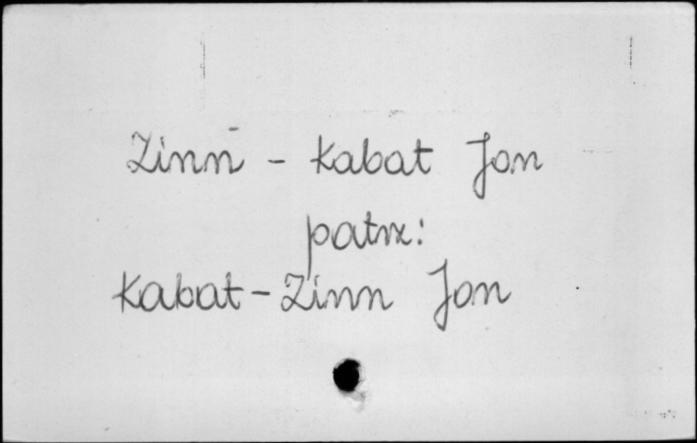 Zinn - Kabat Jon
patrz:
Kabat-Zinn Jon